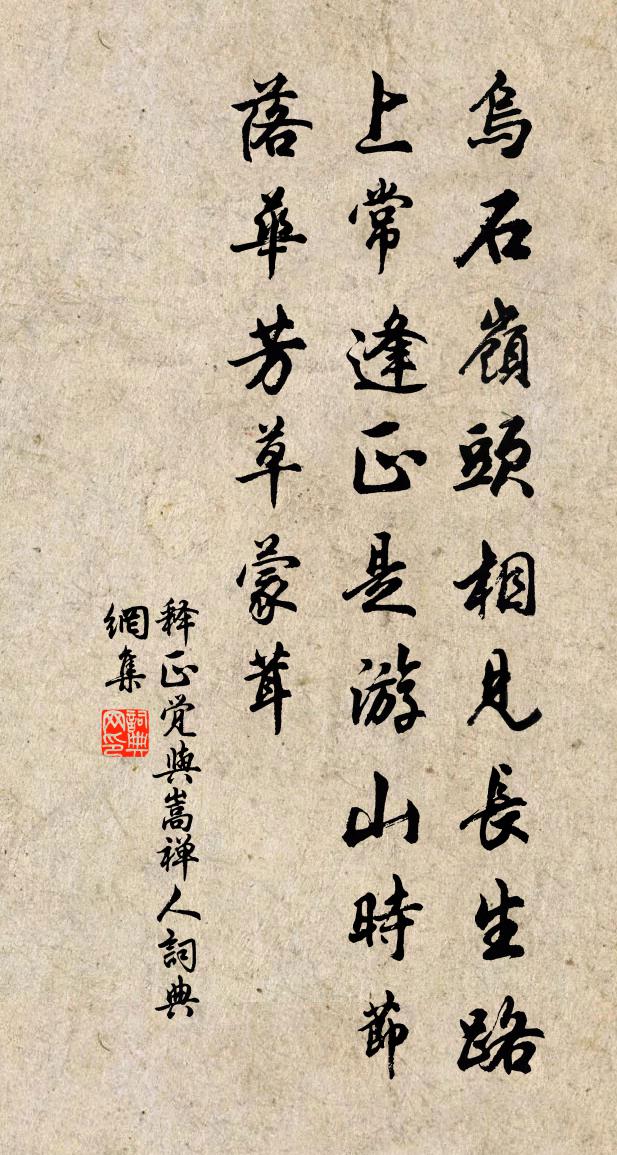 烏石嶺頭相見長生路
上常逢正是游山時節
落華芳草蒙茸
释正觉與嵩禅人詞典
網集
詞典
网印